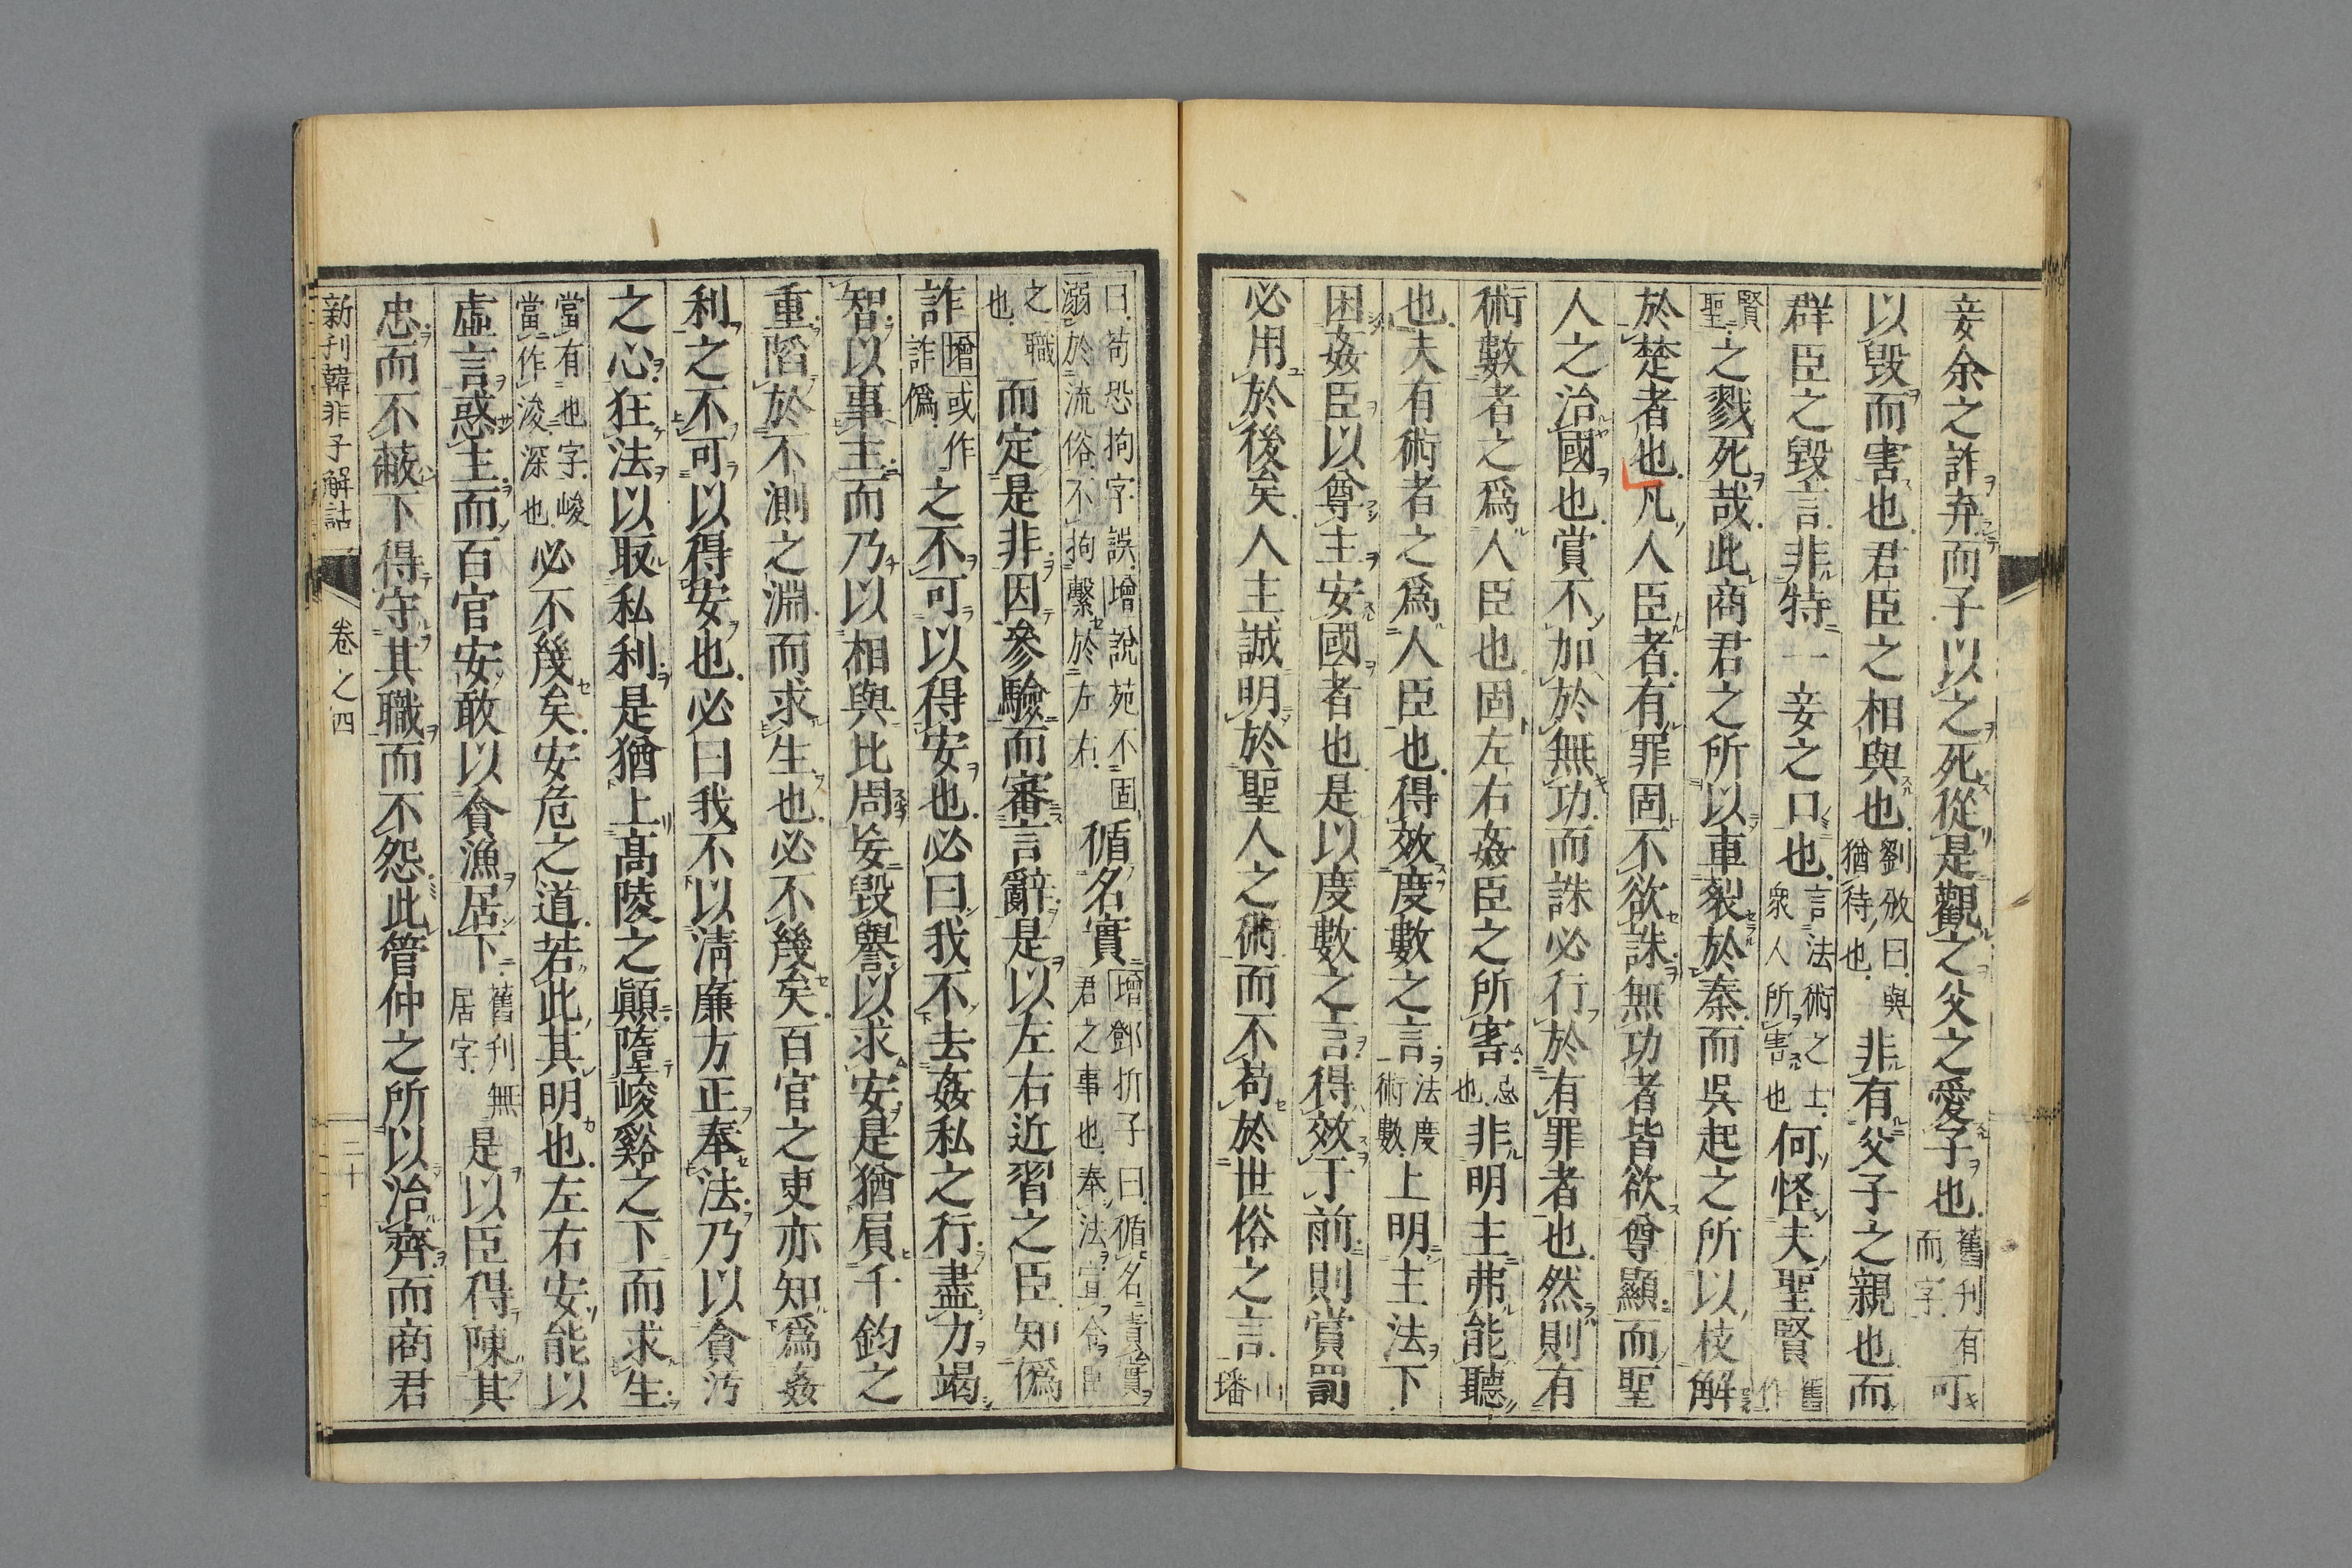 妾余之詐弃而子以之死從是觀之父之愛子也舊刋有而字可
以毀而害也君臣之相與也劉攽曰與猶待也非有父子之親也而
群臣之毀言非特一妾之口也言法術之士衆人所害也何怪夫聖賢舊作
賢聖之戮死哉此商君之所以車裂於秦而吳起之所以枝解
於楚者也凡人臣者有罪固不欲誅無功者皆欲尊顯而聖
人之治國也賞不加於無功而誅必行於有罪者也然則有
術數者之爲人臣也固左右姦臣之所害忌也非明主弗能聽
也夫有術者之爲人臣也得效度數之言法度術數上明主法下
困姦臣以尊主安國者也是以度數之言得效于前則賞罰
必用於後矣人主誠明於聖人之術而不苟於世俗之言山璠
曰苟恐拘字誤增說苑不固溺於流俗不拘繫於左右循名實增鄧析子曰循名責實君之事也奉法宣令臣
之職也而定是非因參驗而審言辭是以左右近習之臣知僞
詐增或作詐僞之不可以得安也必曰我不去姦私之行盡力竭
智以事主而乃以相與比周妄毀譽以求安是猶負千鈞之
重陷於不測之淵而求生也必不幾矣百官之吏亦知爲姦
利之不可以得安也必曰我不以淸廉方正奉法乃以貪汚
之心狂法以取私利是猶上高陵之顚墮峻谿之下而求生
當有也字峻當作浚深也必不幾矣安危之道若此其明也左右安能以
虛言惑主而百官安敢以貪漁居下舊刋無居字是以臣得陳其
忠而不蔽下得守其職而不怨此管仲之所以治齊而商君
新刋韓非子解詁
卷之四
二十